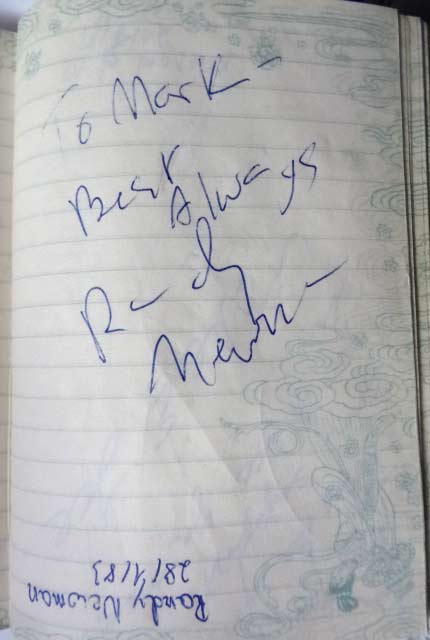 To Mark -
Best
Always
Randy
Newman
Randy Newman
28/1/83